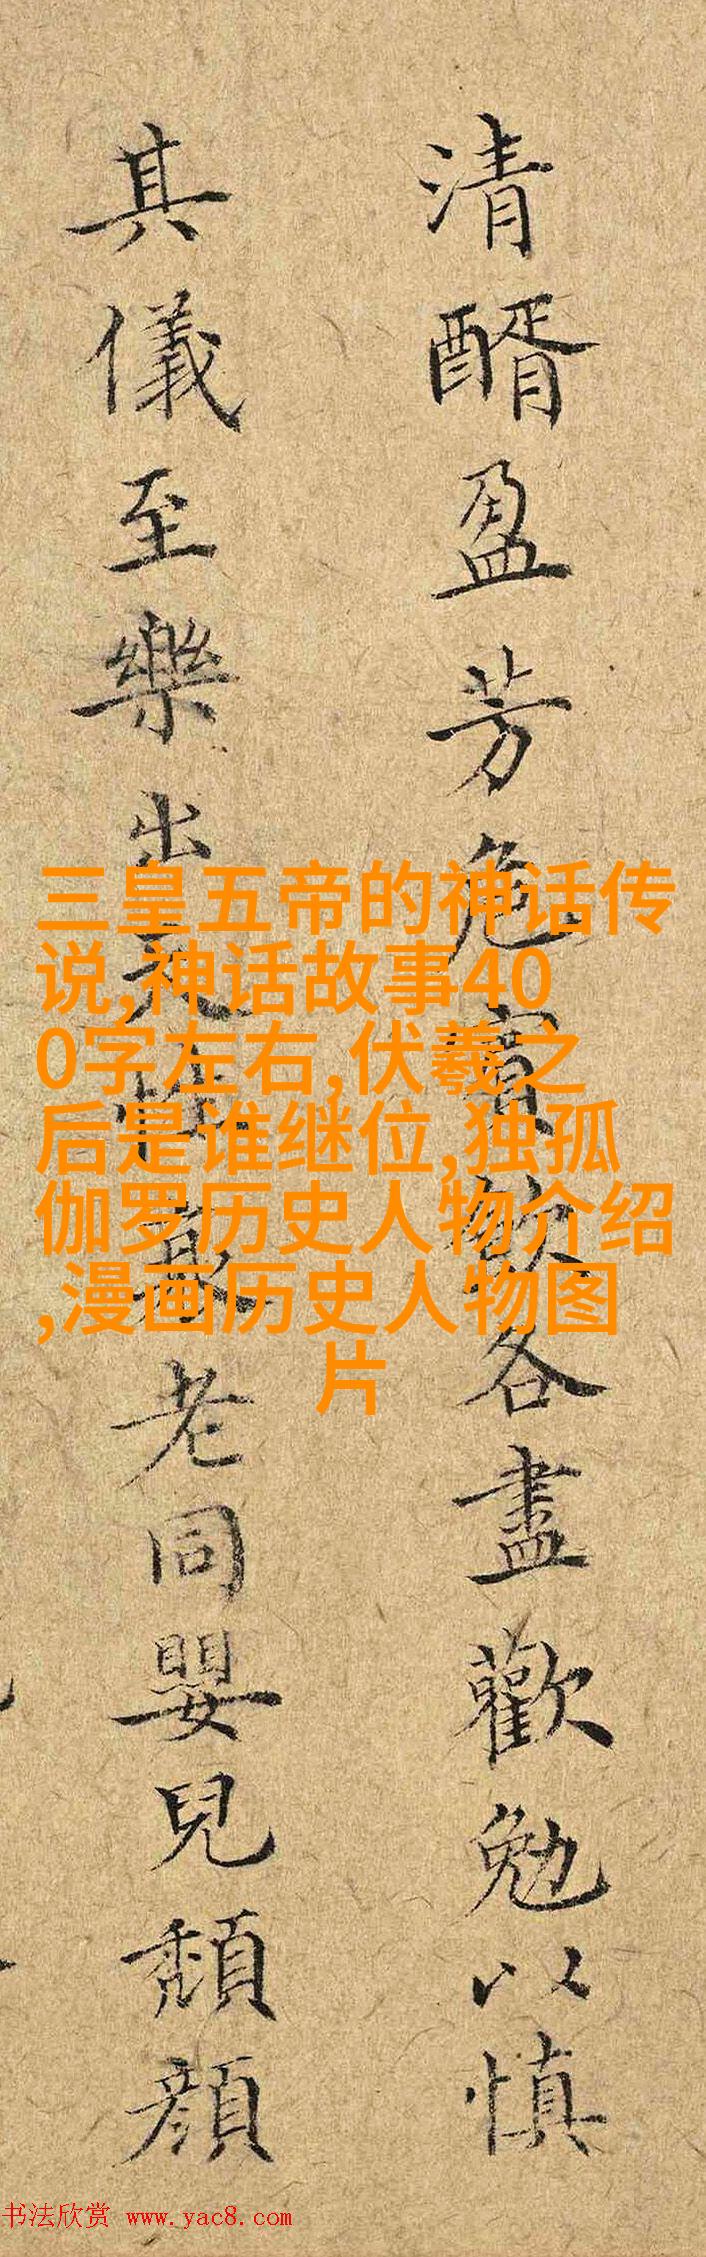 清醑盈芳危賓飲各盡歡勉以慎
其儀至樂出天性衰老同嬰兒頹顏
三皇五帝的神话传
说,神话故事40
0字左右,伏羲之
后是谁继位,独孤
伽罗历史人物介绍
,漫画历史人物图
片
书法欣赏 www.yac8.com